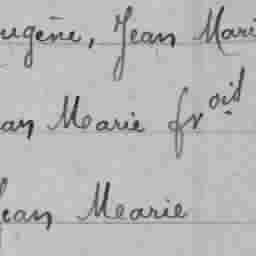 ugène, Jean Mari
an Marie fr oit
Jean Marie